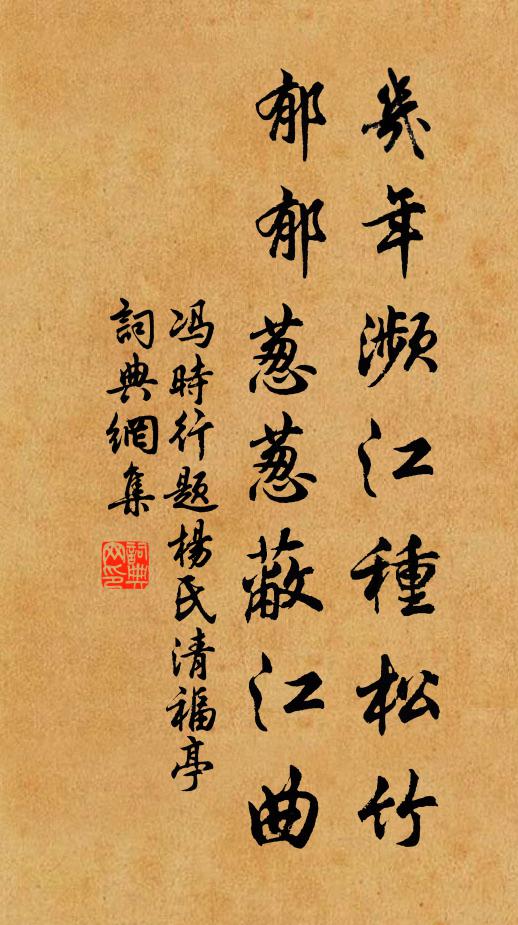 幾年瀕江種松竹
郁郁蔥蔥蔽江曲
冯時行題楊氏清福亭
詞典網集
詞典网印